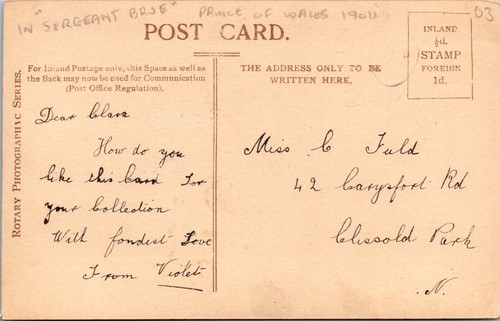 IN "SERGEANT BRUE" PRINCE OF WALES 1904
D3
POST CARD.
For Inland Postage only, this Space as well as
the Back may now be used for Communication
(Post Office Regulation).
THE ADDRESS ONLY TO BE
WRITTEN HERE.
INLAND
½d.
STAMP
FOREIGN
1d.
ROTARY PHOTOGRAPHIC SERIES.
Dear Clara
How do you
like this Card for
your Collection
With fondest Love
From Violet
Miss C Fuld
42 Carysfort Rd
Clissold Park
N.